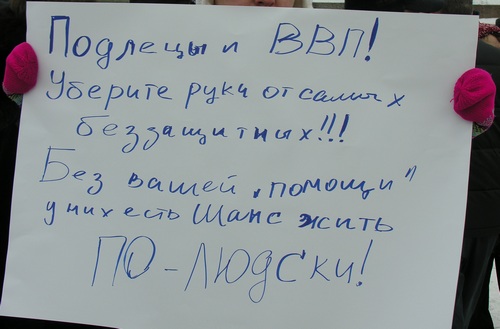 Подлецы и ВВП!
Уберите руки от самых
беззащитных!!!
Без вашей „помощи"
у них есть Шанс жить
ПО-ЛЮДСКИ!